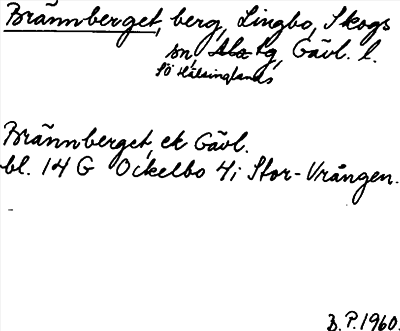 Brännberget, berg, Lingbo, Skogs
sn, Ala tg, Gävl. l.
Sö Hälsinglands
Brännberget, ek Gävl.
bl. 14 G Ockelbo 4i Stor-Vrången.
B.P. 1960.